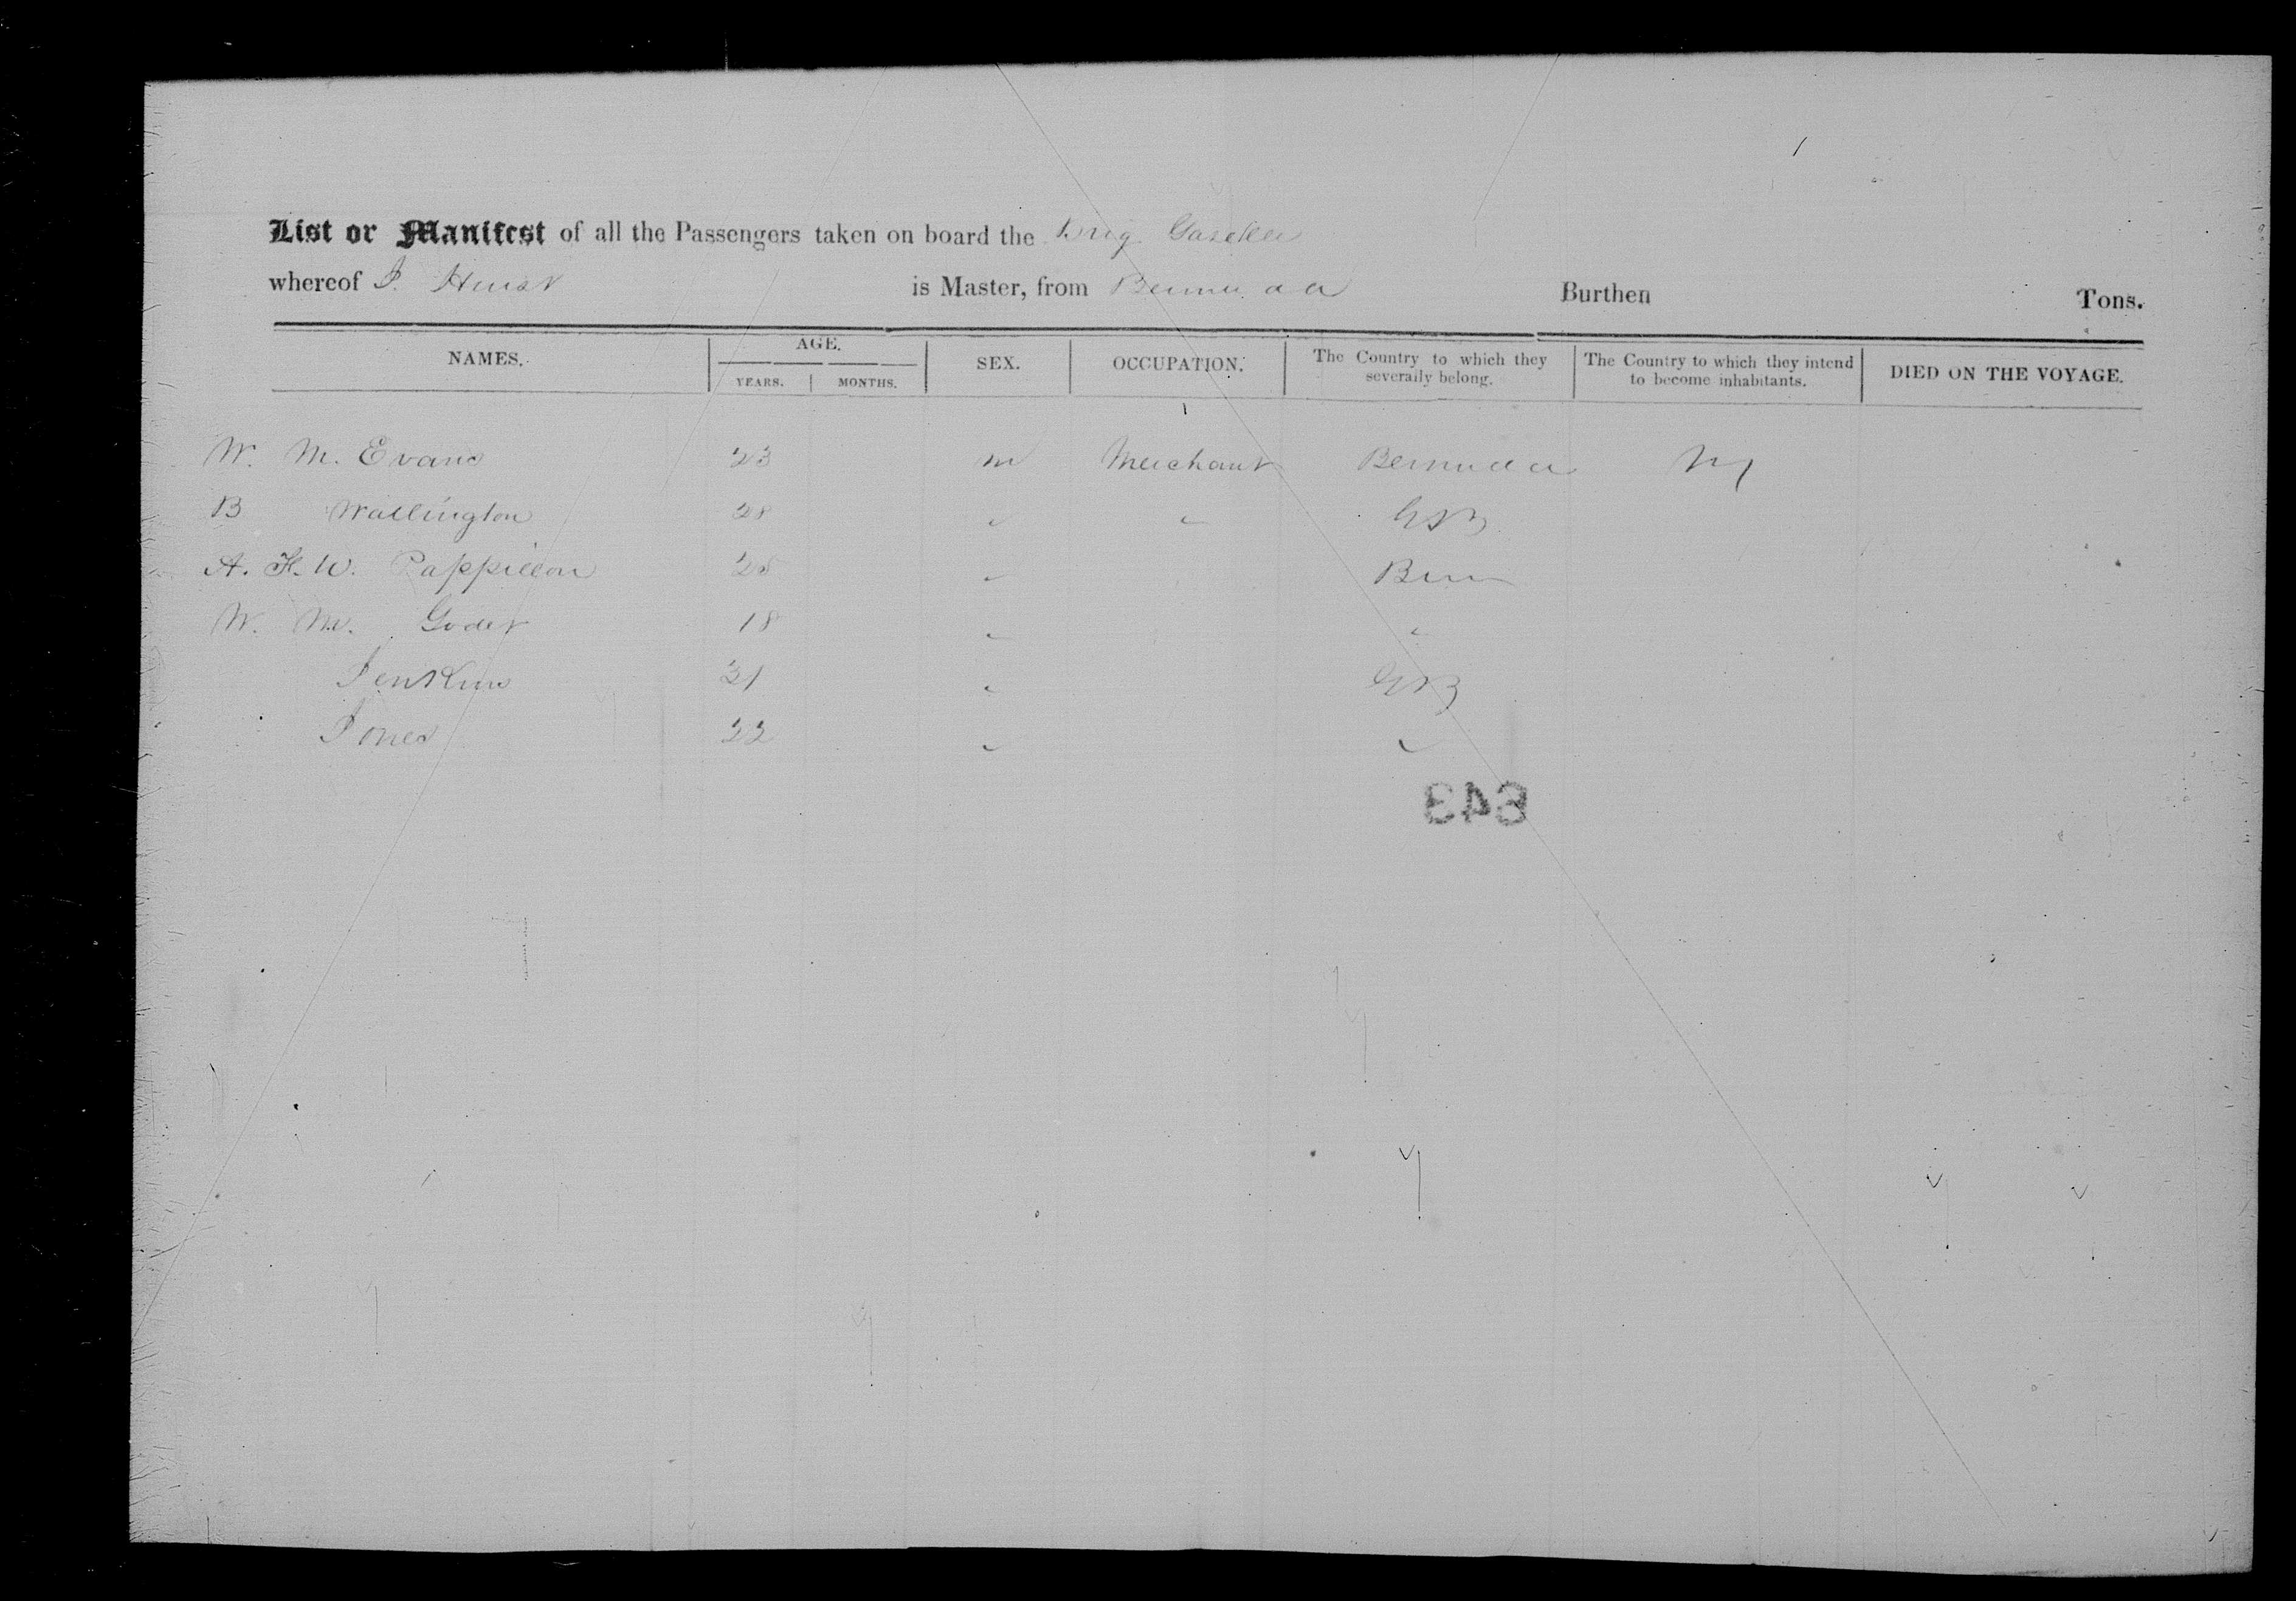 List or Manifest of all the Passengers taken on board the Brig Gazelle
whereof J. Hurst is Master, from Bermuda Burthen Tons.
NAMES. AGE. SEX. OCCUPATION. The Country to which they severally belong. The Country to which they intend to become inhabitants. DIED ON THE VOYAGE.
YEARS. MONTHS.
W. M. Evans 23 m Merchant Bermuda
B Wallington 28 " " GB
A. F. W. Pappillon 25 " Berm
W. M. Godet 18 " "
Jenkins 31 " GB
Jones 22 " "
643